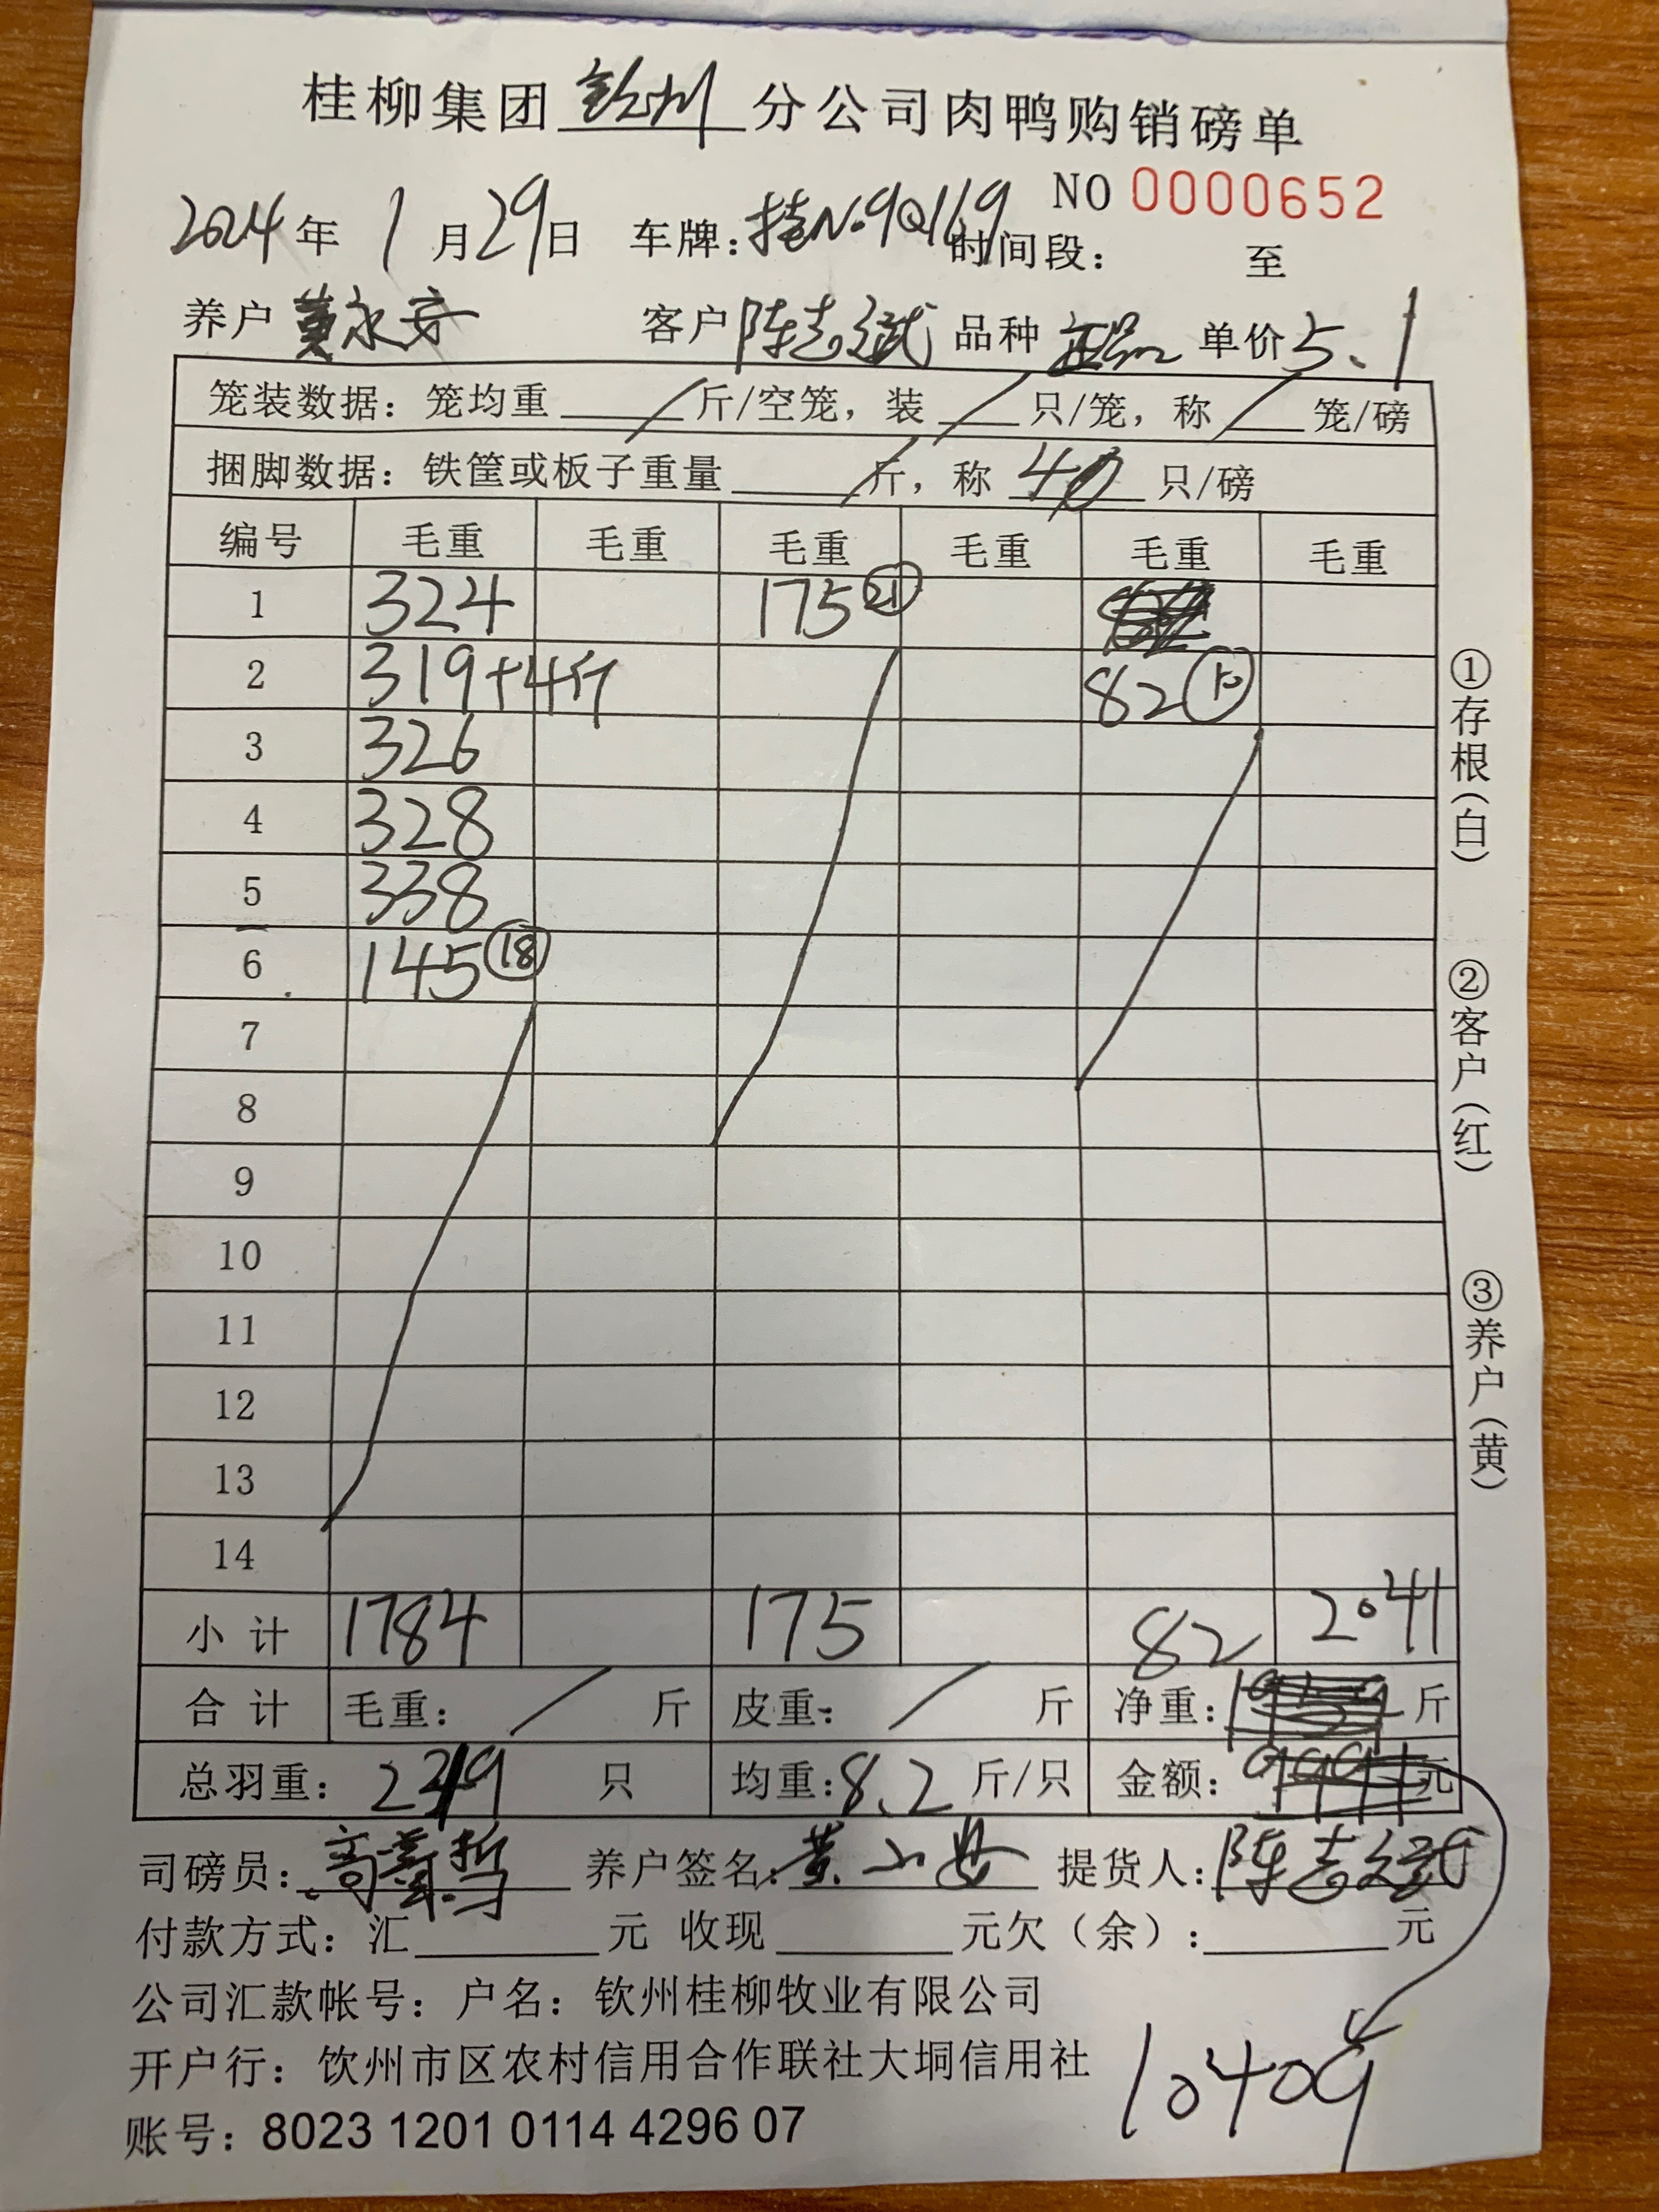 桂柳集团 钦州 分公司肉鸭购销磅单
NO 0000652
2024年 1月29日 车牌: 桂N·9Q169 时间段: 至
养户 黄永安 客户 陈志斌 品种 正品 单价 5.1
笼装数据: 笼均重 / 斤/空笼, 装 / 只/笼, 称 / 笼/磅
捆脚数据: 铁筐或板子重量 / 斤, 称 40 只/磅
编号 毛重 毛重 毛重 毛重 毛重 毛重
1 324 175 21
2 319+4斤 82 10
3 326
4 328
5 338
6 145 18
7
8
9
10
11
12
13
14
小计 1784 175 82 2041
合计 毛重: / 斤 皮重: / 斤 净重: 斤
总羽重: 249 只 均重: 8.2 斤/只 金额: 元
司磅员: 养户签名: 黄 提货人: 陈志斌
付款方式: 汇 元 收现 元欠(余): 元
公司汇款帐号: 户名: 钦州桂柳牧业有限公司
开户行: 饮州市区农村信用合作联社大垌信用社
10409
账号: 8023 1201 0114 4296 07
①存根(白)
②客户(红)
③养户(黄)